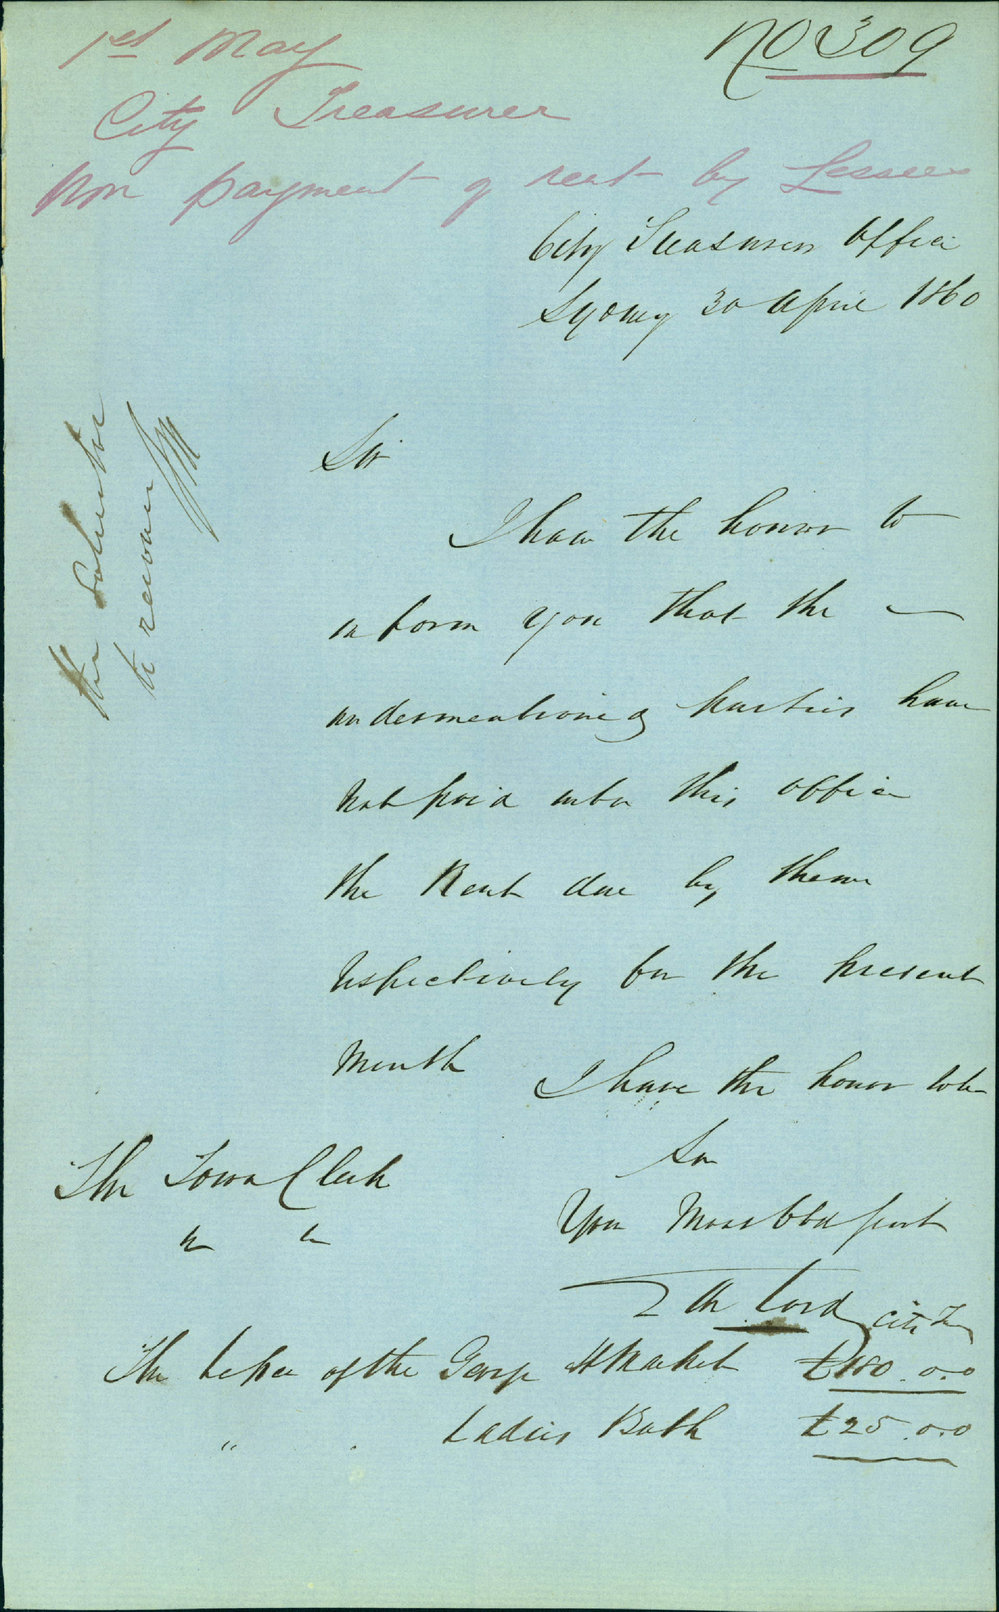 1st May
No 309
City Treasurer
Non payment of rent by Lessees
City Treasurers Office
Sydney 30 April 1860
The Solicitor
to recover
Sir
I have the honor to
inform you that the
undermentioned parties have
not paid into this office
the Rent due by them
respectively for the present
Month
I have the honor to be
Sir
Your Most Obd Servt
The Town Clerk
" "
Lord City Tr
The Lessee of the George St Market £180.0.0
" Ladies Bath £25.0.0